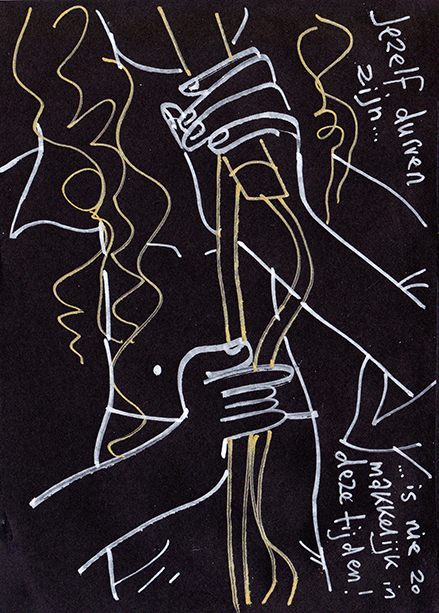 Jezelf durven
zijn...
...is nie zo
makkelijk in
deze tijden!